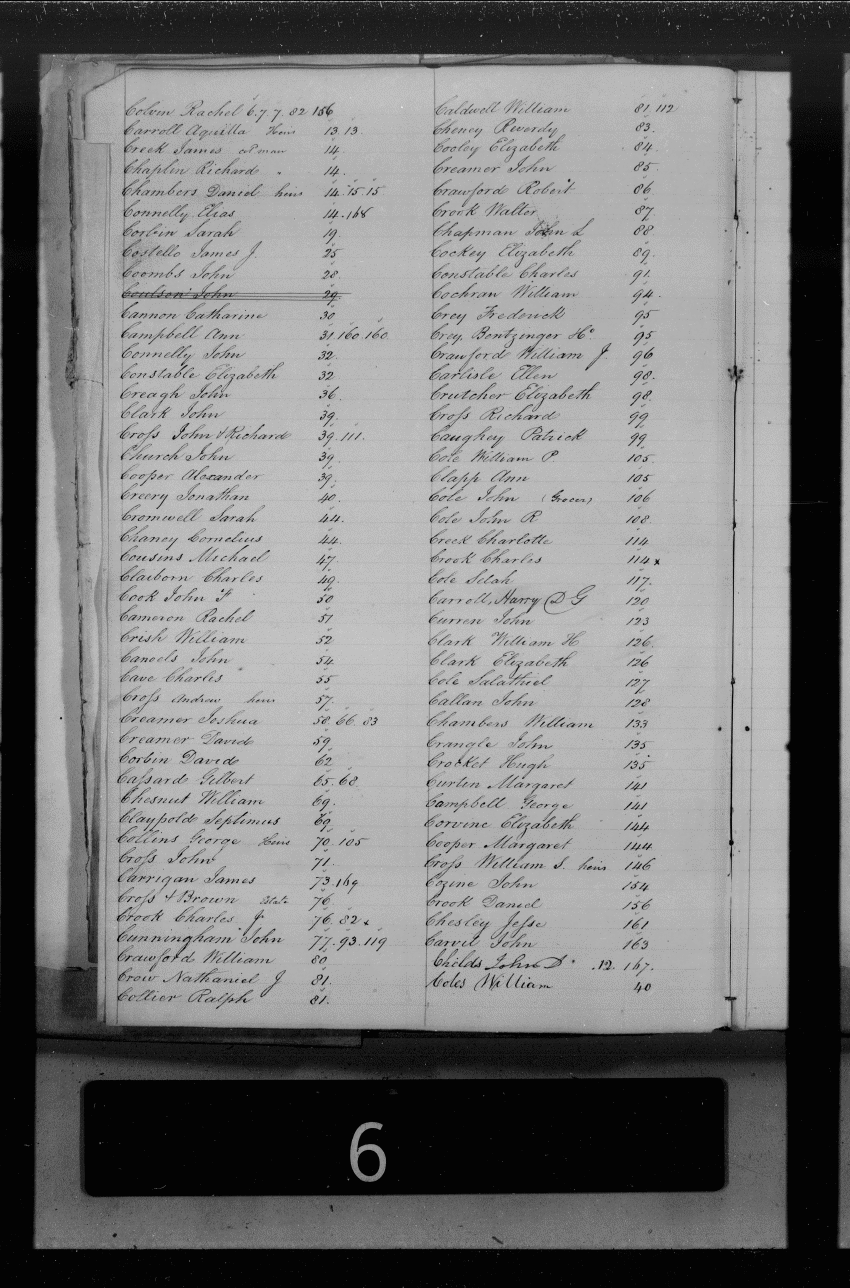 Colvin Rachel 6.7.7.82 156
Carroll Aquilla Heirs 13.13
Creek James col. man 14.
Chaplin Richard " 14.
Chambers Daniel heirs 14.15.15
Connelly Elias 14.168
Corbin Sarah 19
Costello James J. 25
Coombs John 28.
Coulson John 29.
Cannon Catharine 30
Campbell Ann 31.160.160
Connelly John 32.
Constable Elizabeth 32
Creagh John 36.
Clark John 39.
Cross John & Richard 39.111.
Church John 39.
Cooper Alexander 39.
Creery Jonathan 40.
Cromwell Sarah 44.
Chaney Cornelius 44.
Cousins Michael 47.
Claiborn Charles 49.
Cook John F 50
Cameron Rachel 51
Crish William 52
Canoels John 54.
Cave Charles 55
Cross Andrew heirs 57.
Creamer Joshua 58.66.83
Creamer David 59
Corbin David 62
Cassard Gilbert 65.68.
Chesnut William 69.
Claypold Septimus 69
Collins George Heirs 70.105
Cross John 71.
Carrigan James 73.169
Cross & Brown Estate 76
Crook Charles Jr 76.82x
Cunningham John 77.93.119
Crawford William 80
Crow Nathaniel J 81.
Collier Ralph 81.
Caldwell William 81.112
Cheney Reverdy 83.
Cooley Elizabeth 84.
Creamer John 85.
Crawford Robert 86
Crook Walter 87
Chapman John L 88
Cockey Elizabeth 89.
Constable Charles 91.
Cochran William 94.
Crey Frederick 95
Crey, Bentzinger & Co 95
Crawford William J 96
Carlisle Ellen 98.
Crutcher Elizabeth 98.
Cross Richard 99
Caughey Patrick 99
Cole William P 105.
Clapp Ann 105
Cole John (Grocer) 106
Cole John R 108.
Creek Charlotte 114
Crook Charles 114x
Cole Selah 117.
Carroll, Harry D G 120
Curren John 123
Clark William H 126.
Clark Elizabeth 126
Cole Salathiel 127
Callan John 128
Chambers William 133
Crangle John 135
Crocket Hugh 135
Curlin Margaret 141
Campbell George 141
Corvine Elizabeth 144
Cooper Margaret 144
Cross William S. heirs 146
Cozine John 154
Crook Daniel 156
Chesley Jesse 161
Carvil John 163
Childs John D .12.167.
Coles William 40
6